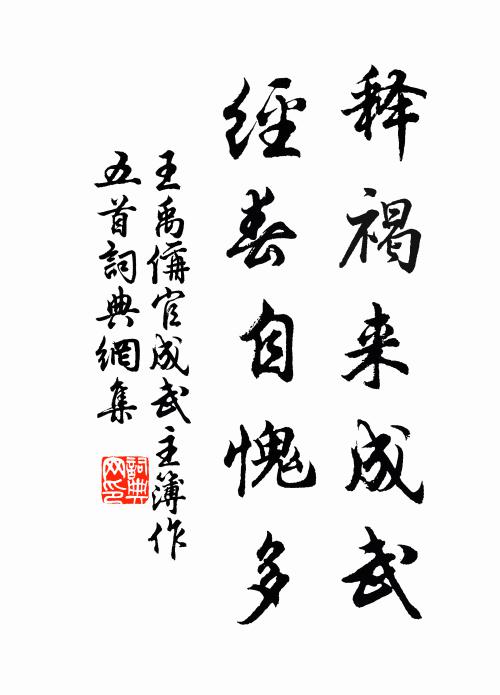 释褐来成武
經春自愧多
王禹偁官成武主簿作
五首詞典網集
詞典
网印